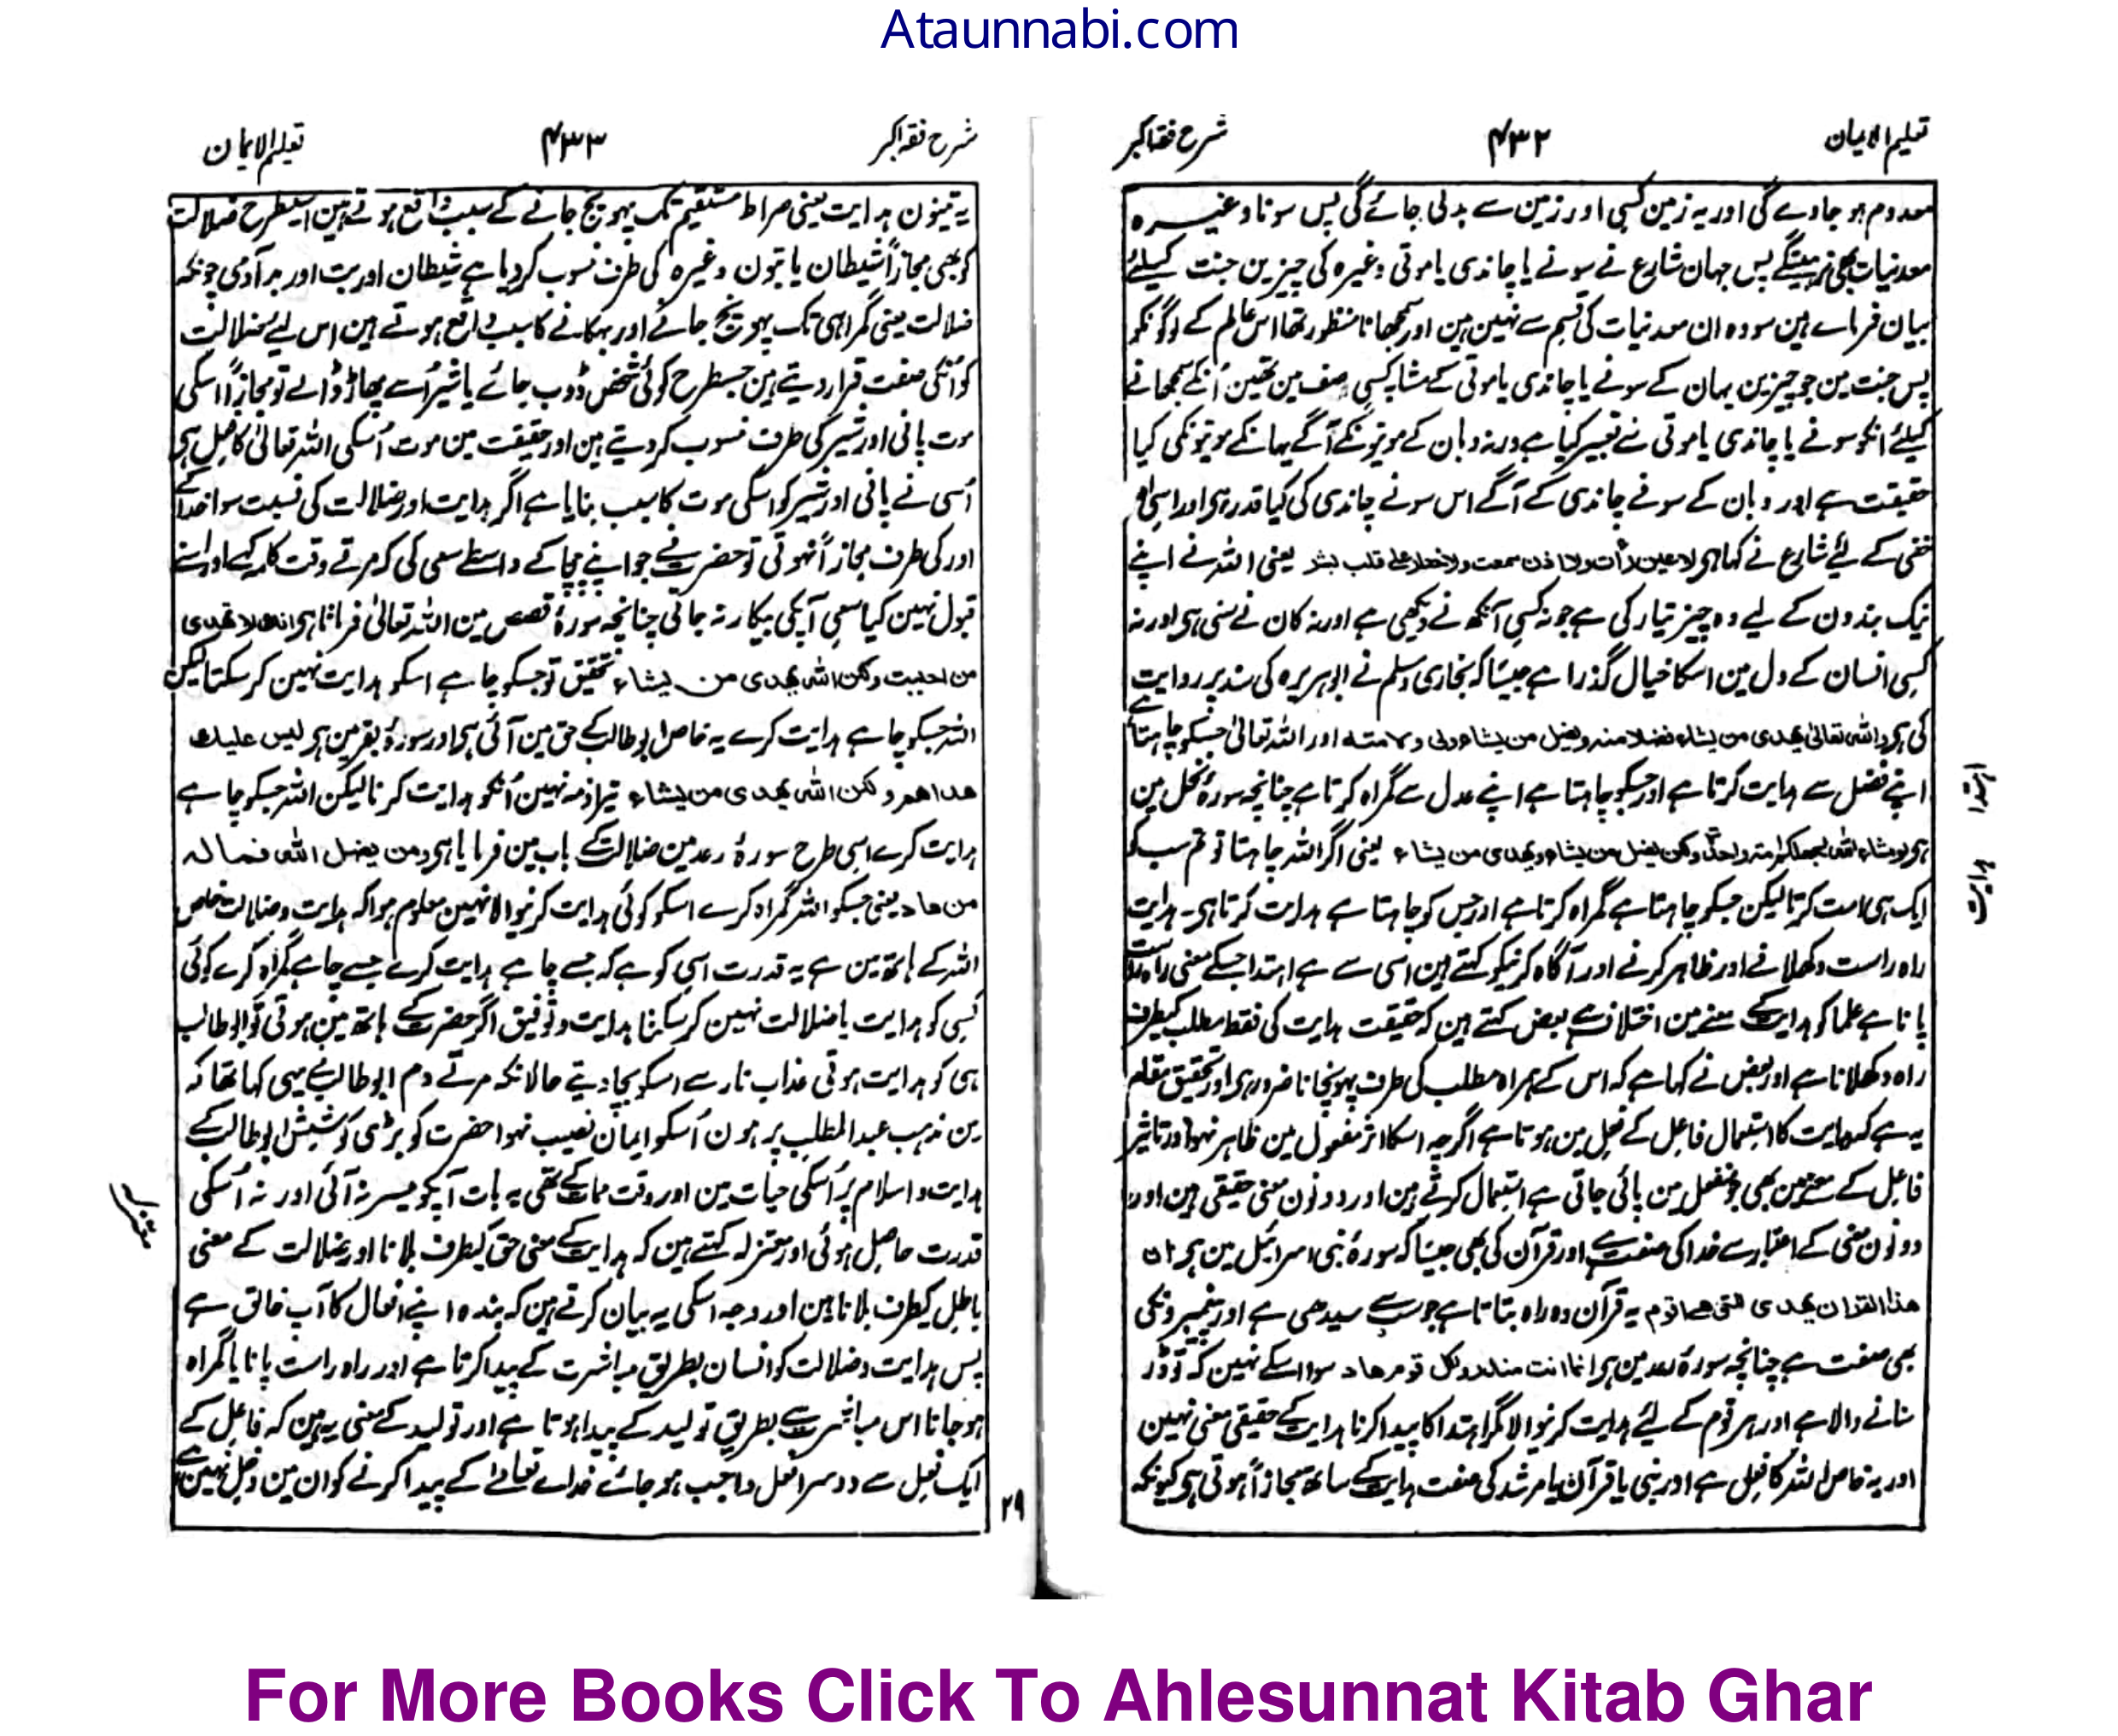 Ataunnabi.com
تعلیم الایمان ۴۳۲ شرح فقہ اکبر
معدوم ہو جاوے گی اور یہ زمین کسی اور زمین سے بدلی جائے گی پس سونا وغیرہ
معدنیات بھی نرہینگے پس جہان شارع نے سونے یا چاندی یا موتی وغیرہ کی چیزین جنت کیلئے
بیان فرمائے ہین سو وہ ان معدنیات کی قسم سے نہین ہین اور سمجھانا منظور تھا اس عالم کے لوگونکو
پس جنت مین جو چیزین یہان کے سونے یا چاندی یا موتی کے مشابہ کسی صنف مین تھین اُنکے سمجھانے
کیلئے انکو سونے یا چاندی یا موتی سے تعبیر کیا ہے ورنہ وہان کے موتیونکے آگے یہانکے موتیونکی کیا
حقیقت ہے اور وہان کے سونے چاندی کے آگے اس سونے چاندی کی کیا قدر ہی اور اسی
خفی کے لئے شارع نے کہا ہی لا عین رأت ولا اذن سمعت ولا خطر علی قلب بشر یعنی اللہ نے اپنے
نیک بندون کے لیے وہ چیز تیار کی ہے جو نہ کسی آنکھ نے دیکھی ہے اور نہ کان نے سنی ہی اور نہ
کسی انسان کے دل مین اسکا خیال گذرا ہے جیسا کہ بخاری ومسلم نے ابو ہریرہ کی سند پر روایت
کی ہی واللہ تعالیٰ یهدی من یشاء فضلا منه ویضل من یشاء عدلا منه اور اللہ تعالیٰ جسکو چاہتا ہے
اپنے فضل سے ہدایت کرتا ہے اور جسکو چاہتا ہے اپنے عدل سے گمراہ کرتا ہے چنانچہ سورۂ نحل مین
ہی ولو شاء اللہ لجعلکم امة واحدة ولکن یضل من یشاء ویهدی من یشاء یعنی اگر اللہ چاہتا تو تم سب کو
ایک ہی امت کرتا لیکن جسکو چاہتا ہے گمراہ کرتا ہے اور جس کو چاہتا ہے ہدایت کرتا ہی۔ ہدایت
راہ راست دکھلانے اور ظاہر کرنے اور آگاہ کرنیکو کہتے ہین اسی سے ہے اہتدا جسکے معنی راہ راست
پانا ہے علما کو ہدایت کے معنے مین اختلاف ہے بعض کہتے ہین کہ حقیقت ہدایت کی فقط مطلب کیطرف
راہ دکھلانا ہے اور بعض نے کہا ہے کہ اس کے ہمراہ مطلب کی طرف پہونچانا ضرور ہی اور تحقیق مقام
یہ ہے کہ ہدایت کا استعمال فاعل کے فعل مین ہوتا ہے اگرچہ اسکا اثر مفعول مین ظاہر نہو اور تاثیر
فاعل کے معنے مین بھی جو منفعل مین پائی جاتی ہے استعمال کرتے ہین اور دونون معنی حقیقی ہین اور
دونون معنی کے اعتبار سے خدا کی صفت ہے اور قرآن کی بھی جیسا کہ سورۂ بنی اسرائیل مین ہی ان
هذا القران یهدی للتی هی اقوم یہ قرآن وہ راہ بتاتا ہے جو سب سے سیدھی ہے اور پیغمبرونکی
بھی صفت ہے چنانچہ سورۂ رعد مین ہی انما انت منذر ولکل قوم هاد سوا اسکے نہین کہ تو ڈر
سنانے والا ہے اور ہر قوم کے لئے ہدایت کرنیوالا مگر اہتدا کا پیدا کرنا ہدایت کے حقیقی معنی نہین
اور یہ خاص اللہ کا فعل ہے اور نبی یا قرآن یا مرشد کی صفت ہدایت کے ساتھ مجازاً ہوتی ہی کیونکہ
اہتدا
ہدایت
شرح فقہ اکبر ۴۳۳ تعلیم الایمان
یہ تینون ہدایت یعنی صراط مستقیم تک پہونچ جانے کے سبب واقع ہوتے ہین اسیطرح ضلالت
کو بھی مجازاً شیطان یا بتون وغیرہ کی طرف منسوب کر دیا ہے شیطان اور بت اور بد آدمی چونکہ
ضلالت یعنی گمراہی تک پہونچ جانے اور بہکانے کا سبب واقع ہوتے ہین اس لئے ضلالت
کو اُنکی صفت قرار دیتے ہین جسطرح کوئی شخص ڈوب جائے یا شیر اُسے پھاڑ ڈالے تو مجازاً اسکی
موت پانی اور شیر کی طرف منسوب کر دیتے ہین اور حقیقت مین موت اُسکی اللہ تعالیٰ کا فعل ہی
اُسی نے پانی اور شیر کو اسکی موت کا سبب بنایا ہے اگر ہدایت اور ضلالت کی نسبت سوا خدا کے
اور کی طرف مجازاً نہوتی تو حضرت نے جو اپنے چچا کے واسطے سعی کی کہ مرتے وقت کلمہ کہے اور اسنے
قبول نہین کیا سعی آپکی بیکار نہ جاتی چنانچہ سورۂ قصص مین اللہ تعالیٰ فرماتا ہی انک لا تهدی
من احببت ولکن اللہ یهدی من یشاء تحقیق تو جسکو چاہے اسکو ہدایت نہین کر سکتا لیکن
اللہ جسکو چاہے ہدایت کرے یہ خاص ابوطالب کے حق مین آئی ہی اور سورۂ بقر مین ہی لیس علیک
هداهم ولکن اللہ یهدی من یشاء تیرا ذمہ نہین اُنکو ہدایت کرنا لیکن اللہ جسکو چاہے
ہدایت کرے اسی طرح سورۂ رعد مین ضلالت کے باب مین فرمایا ہی ومن یضلل اللہ فما له
من هاد یعنی جسکو اللہ گمراہ کرے اسکو کوئی ہدایت کرنیوالا نہین معلوم ہوا کہ ہدایت وضلالت خاص
اللہ کے ہاتھ مین ہے یہ قدرت اسی کو ہے کہ جسے چاہے ہدایت کرے جسے چاہے گمراہ کرے کوئی
کسی کو ہدایت یا ضلالت نہین کر سکتا ہدایت وتوفیق اگر حضرت کے ہاتھ مین ہوتی تو ابوطالب
ہی کو ہدایت ہوتی عذاب نار سے اسکو بچا دیتے حالانکہ مرتے دم ابوطالب نے یہی کہا تھا کہ
مین مذہب عبدالمطلب پر ہون اُسکو ایمان نصیب نہوا حضرت کو بڑی کوشش ابوطالب کے
ہدایت و اسلام پر اُسکی حیات مین اور وقت ممات کے تھی یہ بات آپکو میسر نہ آئی اور نہ اُسکی
قدرت حاصل ہوئی اور معتزلہ کہتے ہین کہ ہدایت کے معنی حق کیطرف بلانا اور ضلالت کے معنی
باطل کیطرف بلانا ہین اور وجہ اسکی یہ بیان کرتے ہین کہ بندہ اپنے افعال کا آپ خالق ہے
پس ہدایت وضلالت کو انسان بطریق مباشرت کے پیدا کرتا ہے اور راہ راست پانا یا گمراہ
ہو جانا اس مباشرت سے بطریق تولید کے پیدا ہوتا ہے اور تولید کے معنی یہ ہین کہ فاعل کے
ایک فعل سے دوسرا فعل واجب ہو جائے خدائے تعالےٰ کے پیدا کرنے کو ان مین دخل نہین ہے
معتزلہ
۲۹
For More Books Click To Ahlesunnat Kitab Ghar